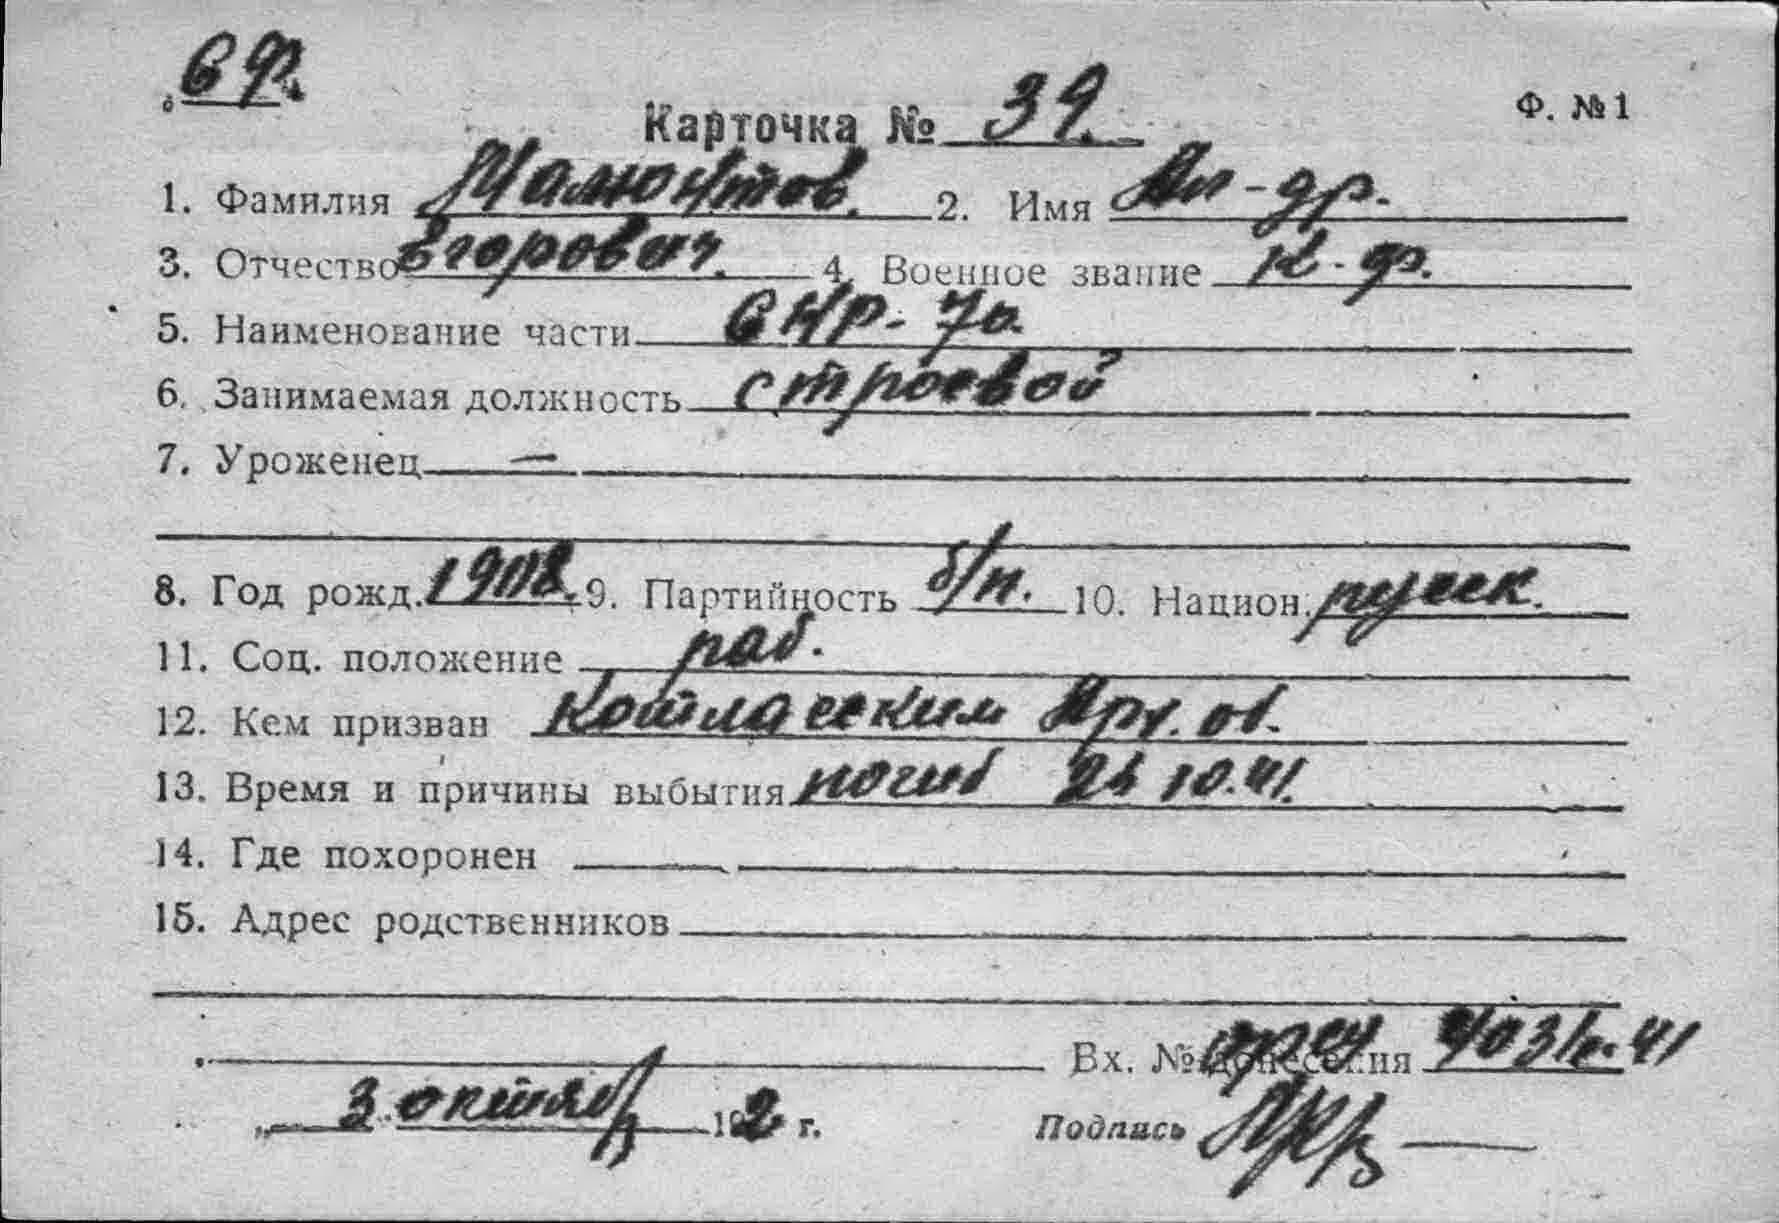 6 ф.
Ф. №1
Карточка № 39.
1. Фамилия Малютов. 2. Имя Ал-др.
3. Отчество Егорович. 4. Военное звание к-ф.
5. Наименование части СНР-70.
6. Занимаемая должность строевой
7. Уроженец —
8. Год рожд. 1908. 9. Партийность б/п. 10. Национ. русск.
11. Соц. положение раб.
12. Кем призван Котласским
13. Время и причины выбытия погиб 10.41.
14. Где похоронен
15. Адрес родственников
Вх. № донесения
3 октяб 1942 г. Подпись